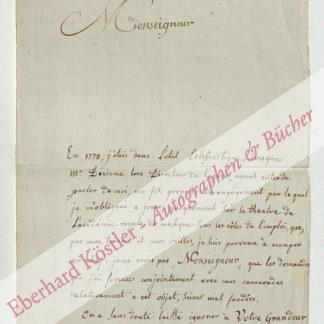 Monseigneur
En 1778, j'étois dans l'état Ecclésiastique lorsque
Mr. Devisme lors Directeur de l' ayant entendu
parler de moi, me fit engagement par lequel
je m'obligeai à sur le théatre de
l'académie royale de musique les rôles de l'emploi, que,
par mon et mes veilles, je suis parvenu à occuper
je ne crois pas Monseigneur, que les demandes
que j'ai formées conjointement avec mes camarades
relativement à cet objet, soient mal fondées.
On a sans doute laissé ignorer à Votre Grandeur
Eberhard Köstler - Autographen & Bücher